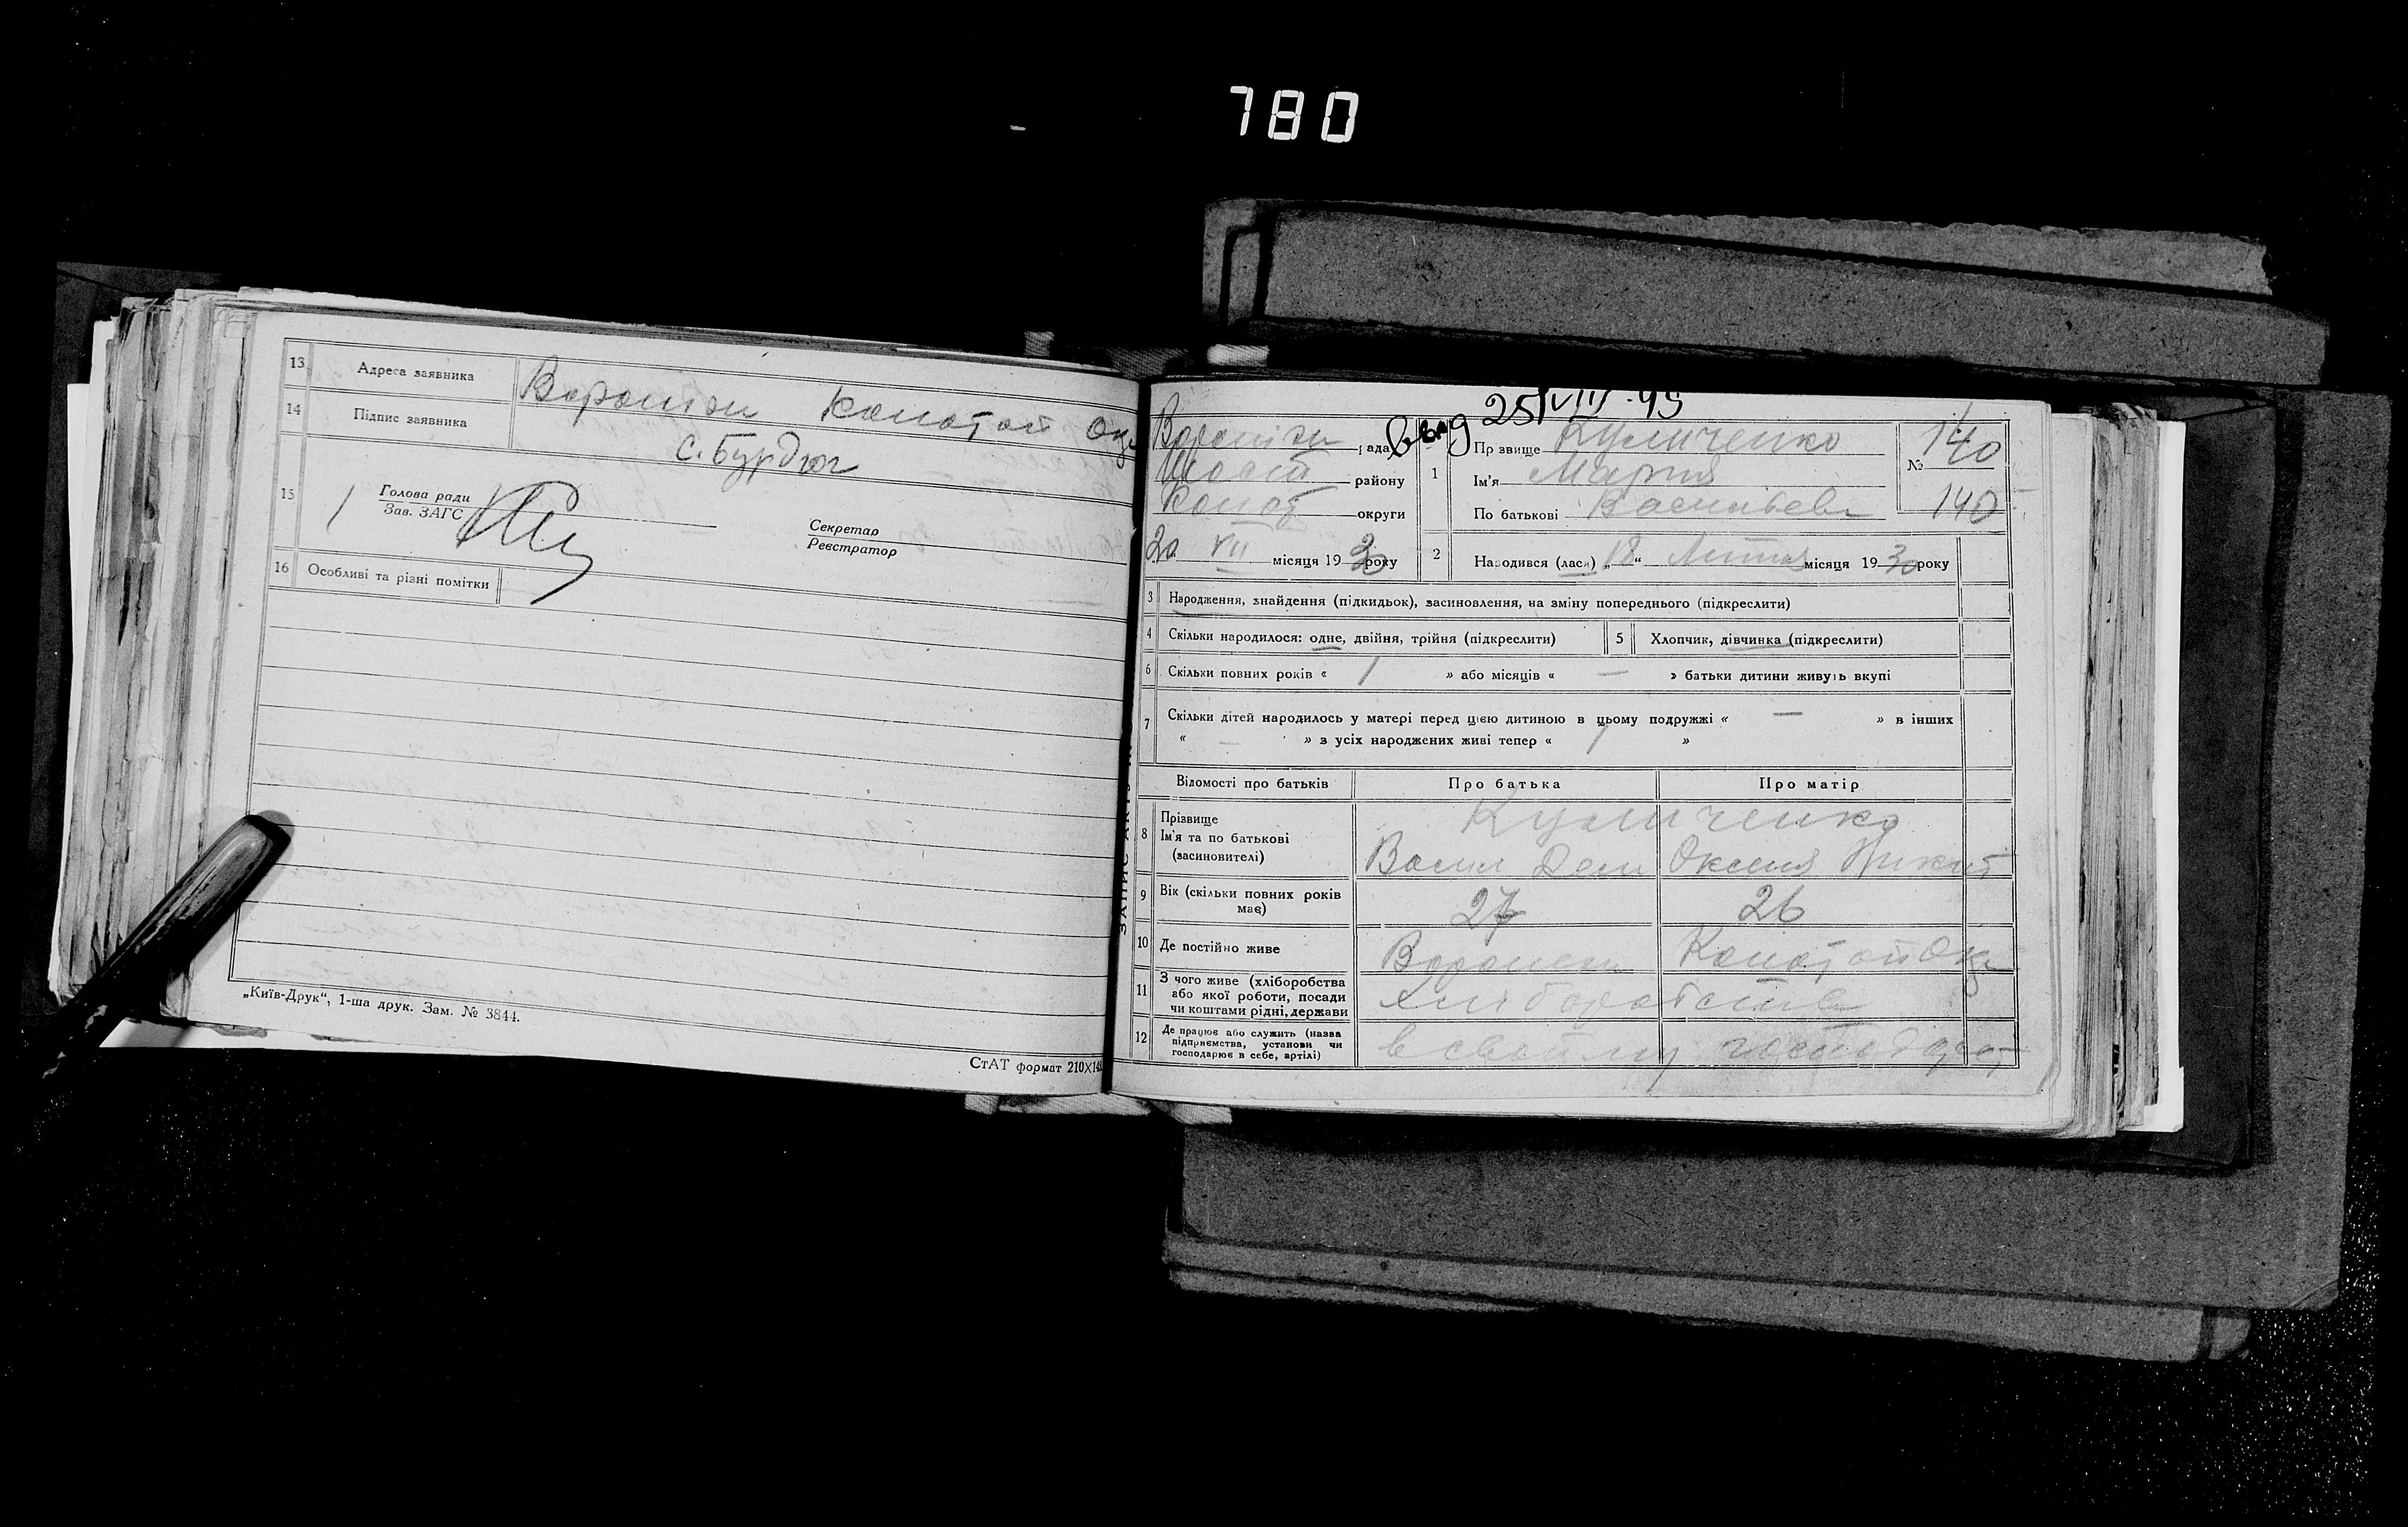 780
13 Адреса заявника Вороніж Конотоп Окр
14 Підпис заявника
С. Бурдюг
15 Голова ради
Зав. ЗАГС
Секретар
Реєстратор
16 Особливі та різні помітки
„Київ-Друк“, 1-ша друк. Зам. № 3844.
СтАТ формат 210X148
25/VIII-45
рада
району
Коног округи
20 VII місяця 1930 року
1 Прізвище Куличенко
Ім'я Мария
По батькові Васильевн
№ 140
140
2 Народився (лася) „18“ Липня місяця 1930 року
3 Народження, знайдення (підкидьок), засиновлення, на зміну попереднього (підкреслити)
4 Скільки народилося: одне, двійня, трійня (підкреслити)
5 Хлопчик, дівчинка (підкреслити)
6 Скільки повних років « 1 » або місяців « — » батьки дитини живуть вкупі
7 Скільки дітей народилось у матері перед цією дитиною в цьому подружжі « — » в інших
« — » з усіх народжених живі тепер « 1 »
Відомості про батьків Про батька Про матір
8 Прізвище
Ім'я та по батькові
(засиновителі)
Куличенко
Васил Дем Оксения Никит
9 Вік (скільки повних років має) 27 26
10 Де постійно живе Воронеж Конотоп Окр
11 З чого живе (хліборобства
або якої роботи, посади
чи коштами рідні, держави
хліборобство
12 Де працює або служить (назва
підприємства, установи чи
господарює в себе, артілі)
в своему господарст